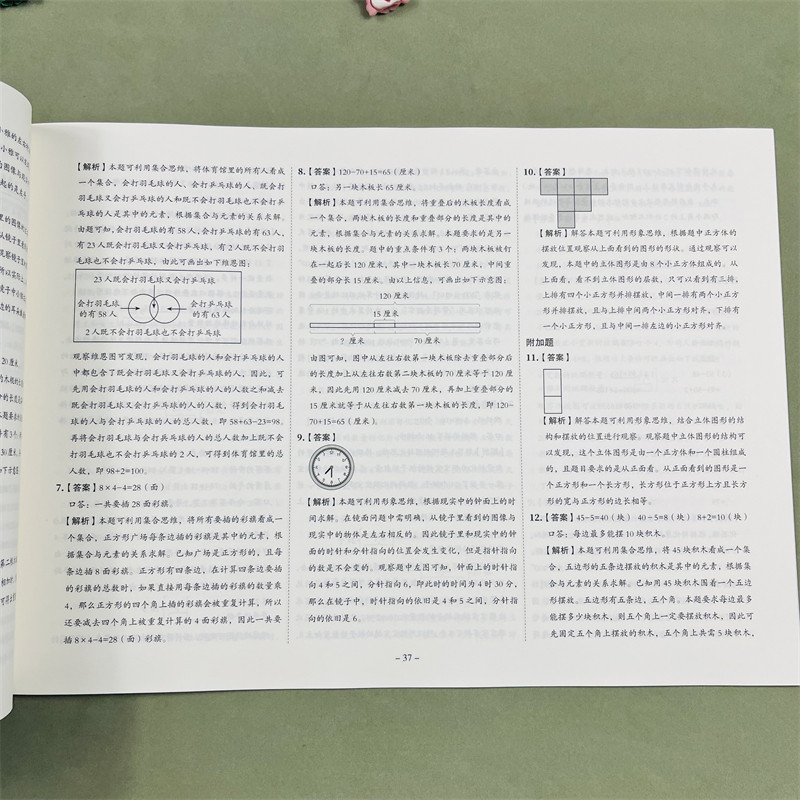 【解析】本题可利用集合思维，将体育馆里的所有人看成
一个集合，会打羽毛球的人、会打乒乓球的人、既会打
羽毛球又会打乒乓球的人和不会打羽毛球也不会打乒乓
球的人是其中的元素，根据集合与元素的关系求解。
由题可知，会打羽毛球的有58人，会打乒乓球的有63人，
有23人既会打羽毛球又会打乒乓球，有2人既不会打羽
毛球也不会打乒乓球，由此可画出如下维恩图：
23人既会打羽毛球又会打乒乓球
会打羽毛球
的有58人
会打乒乓球
的有63人
2人既不会打羽毛球也不会打乒乓球
观察维恩图可发现，会打羽毛球的人和会打乒乓球的人
中都包含了既会打羽毛球又会打乒乓球的人，因此，可
先用会打羽毛球的人和会打乒乓球的人的人数之和减去
既会打羽毛球又会打乒乓球的人的人数，得到会打羽毛
球的人与会打乒乓球的人的总人数，即58+63-23=98。
再将会打羽毛球与会打乒乓球的人的总人数加上既不会
打羽毛球也不会打乒乓球的2人，可得到体育馆里的总
人数，即98+2=100。
7.【答案】8×4-4=28（面）
口答：一共要插28面彩旗。
【解析】本题可利用集合思维，将所有要插的彩旗看成一
个集合，正方形广场每条边插的彩旗是其中的元素，根
据集合与元素的关系求解。已知广场是正方形的，且每
条边插8面彩旗。正方形有四条边，在计算四条边要插
的彩旗的总数时，如果直接用每条边插的彩旗的数量乘
4，那么正方形的四个角上插的彩旗会被重复计算，所以
还要减去四个角上被重复计算的4面彩旗，因此一共要
插8×4-4=28（面）彩旗。
8.【答案】120-70+15=65（厘米）
口答：另一块木板长65厘米。
【解析】本题可利用集合思维，将重叠后的木板长度看成
一个集合，两块木板的长度和重叠部分的长度是其中的
元素，根据集合与元素的关系求解。本题要求的是另一
块木板的长度。题中的重点条件有3个：两块木板被钉
在一起后长120厘米，其中一块木板长70厘米，中间重
叠的部分长15厘米。由以上信息，可画出如下示意图：
120厘米
15厘米
？厘米 70厘米
由图可知，图中从左往右数第一块木板除去重叠部分后
的长度加上从左往右数第二块木板的70厘米等于120厘
米，因此先用120厘米减去70厘米，再加上重叠部分的
15厘米就等于从左往右数第一块木板的长度，即120-
70+15=65（厘米）。
9.【答案】
【解析】本题可利用形象思维，根据现实中的钟面上的时
间求解。在镜面问题中需明确，从镜子里看到的图像与
现实中的物体是左右相反的。因此镜子里和现实中的钟
面的时针和分针指向的位置会发生变化，但是指针指向
的数是不会变的。观察题中左图可知，钟面上的时针指
向4和5之间，分针指向6，即此时的时间为4时30分，
那么在镜子中，时针指向的依旧是4和5之间，分针指
向的依旧是6。
10.【答案】
【解析】解答本题可利用形象思维，根据题中正方体的
摆放位置观察从上面看到的图形的形状。通过观察可以
发现，本题中的立体图形是由8个小正方体组成的。从
上面看，看不到立体图形的层数，只可以看到有三排，
上排有四个小正方形并排摆放，中间一排有两个小正方
形并排摆放，且与上排中间两个小正方形对齐，下排有
一个小正方形，且与中间一排左边的小正方形对齐。
附加题
11.【答案】
【解析】解答本题可利用形象思维，结合立体图形的结
构和摆放的位置进行观察。观察题中立体图形的结构可
以发现，这个立体图形是由一个正方体和一个圆柱组成
的，且题目要求的是从正面看。从正面看到的图形是一
个正方形和一个长方形，长方形位于正方形上方且长方
形的宽与正方形的边长相等。
12.【答案】45-5=40（块） 40÷5=8（块） 8+2=10（块）
口答：每边最多能摆10块积木。
【解析】本题可利用集合思维，将45块积木看成一个集
合，五边形的五条边摆放的积木是其中的元素，根据集
合与元素的关系求解。已知用45块积木围着一个五边
形摆放，五边形有五条边，五个角。本题要求每边最多
能摆多少块积木，则五个角上一定要摆放积木，因此可
先固定五个角上摆放的积木，五个角上共需5块积木，
- 37 -